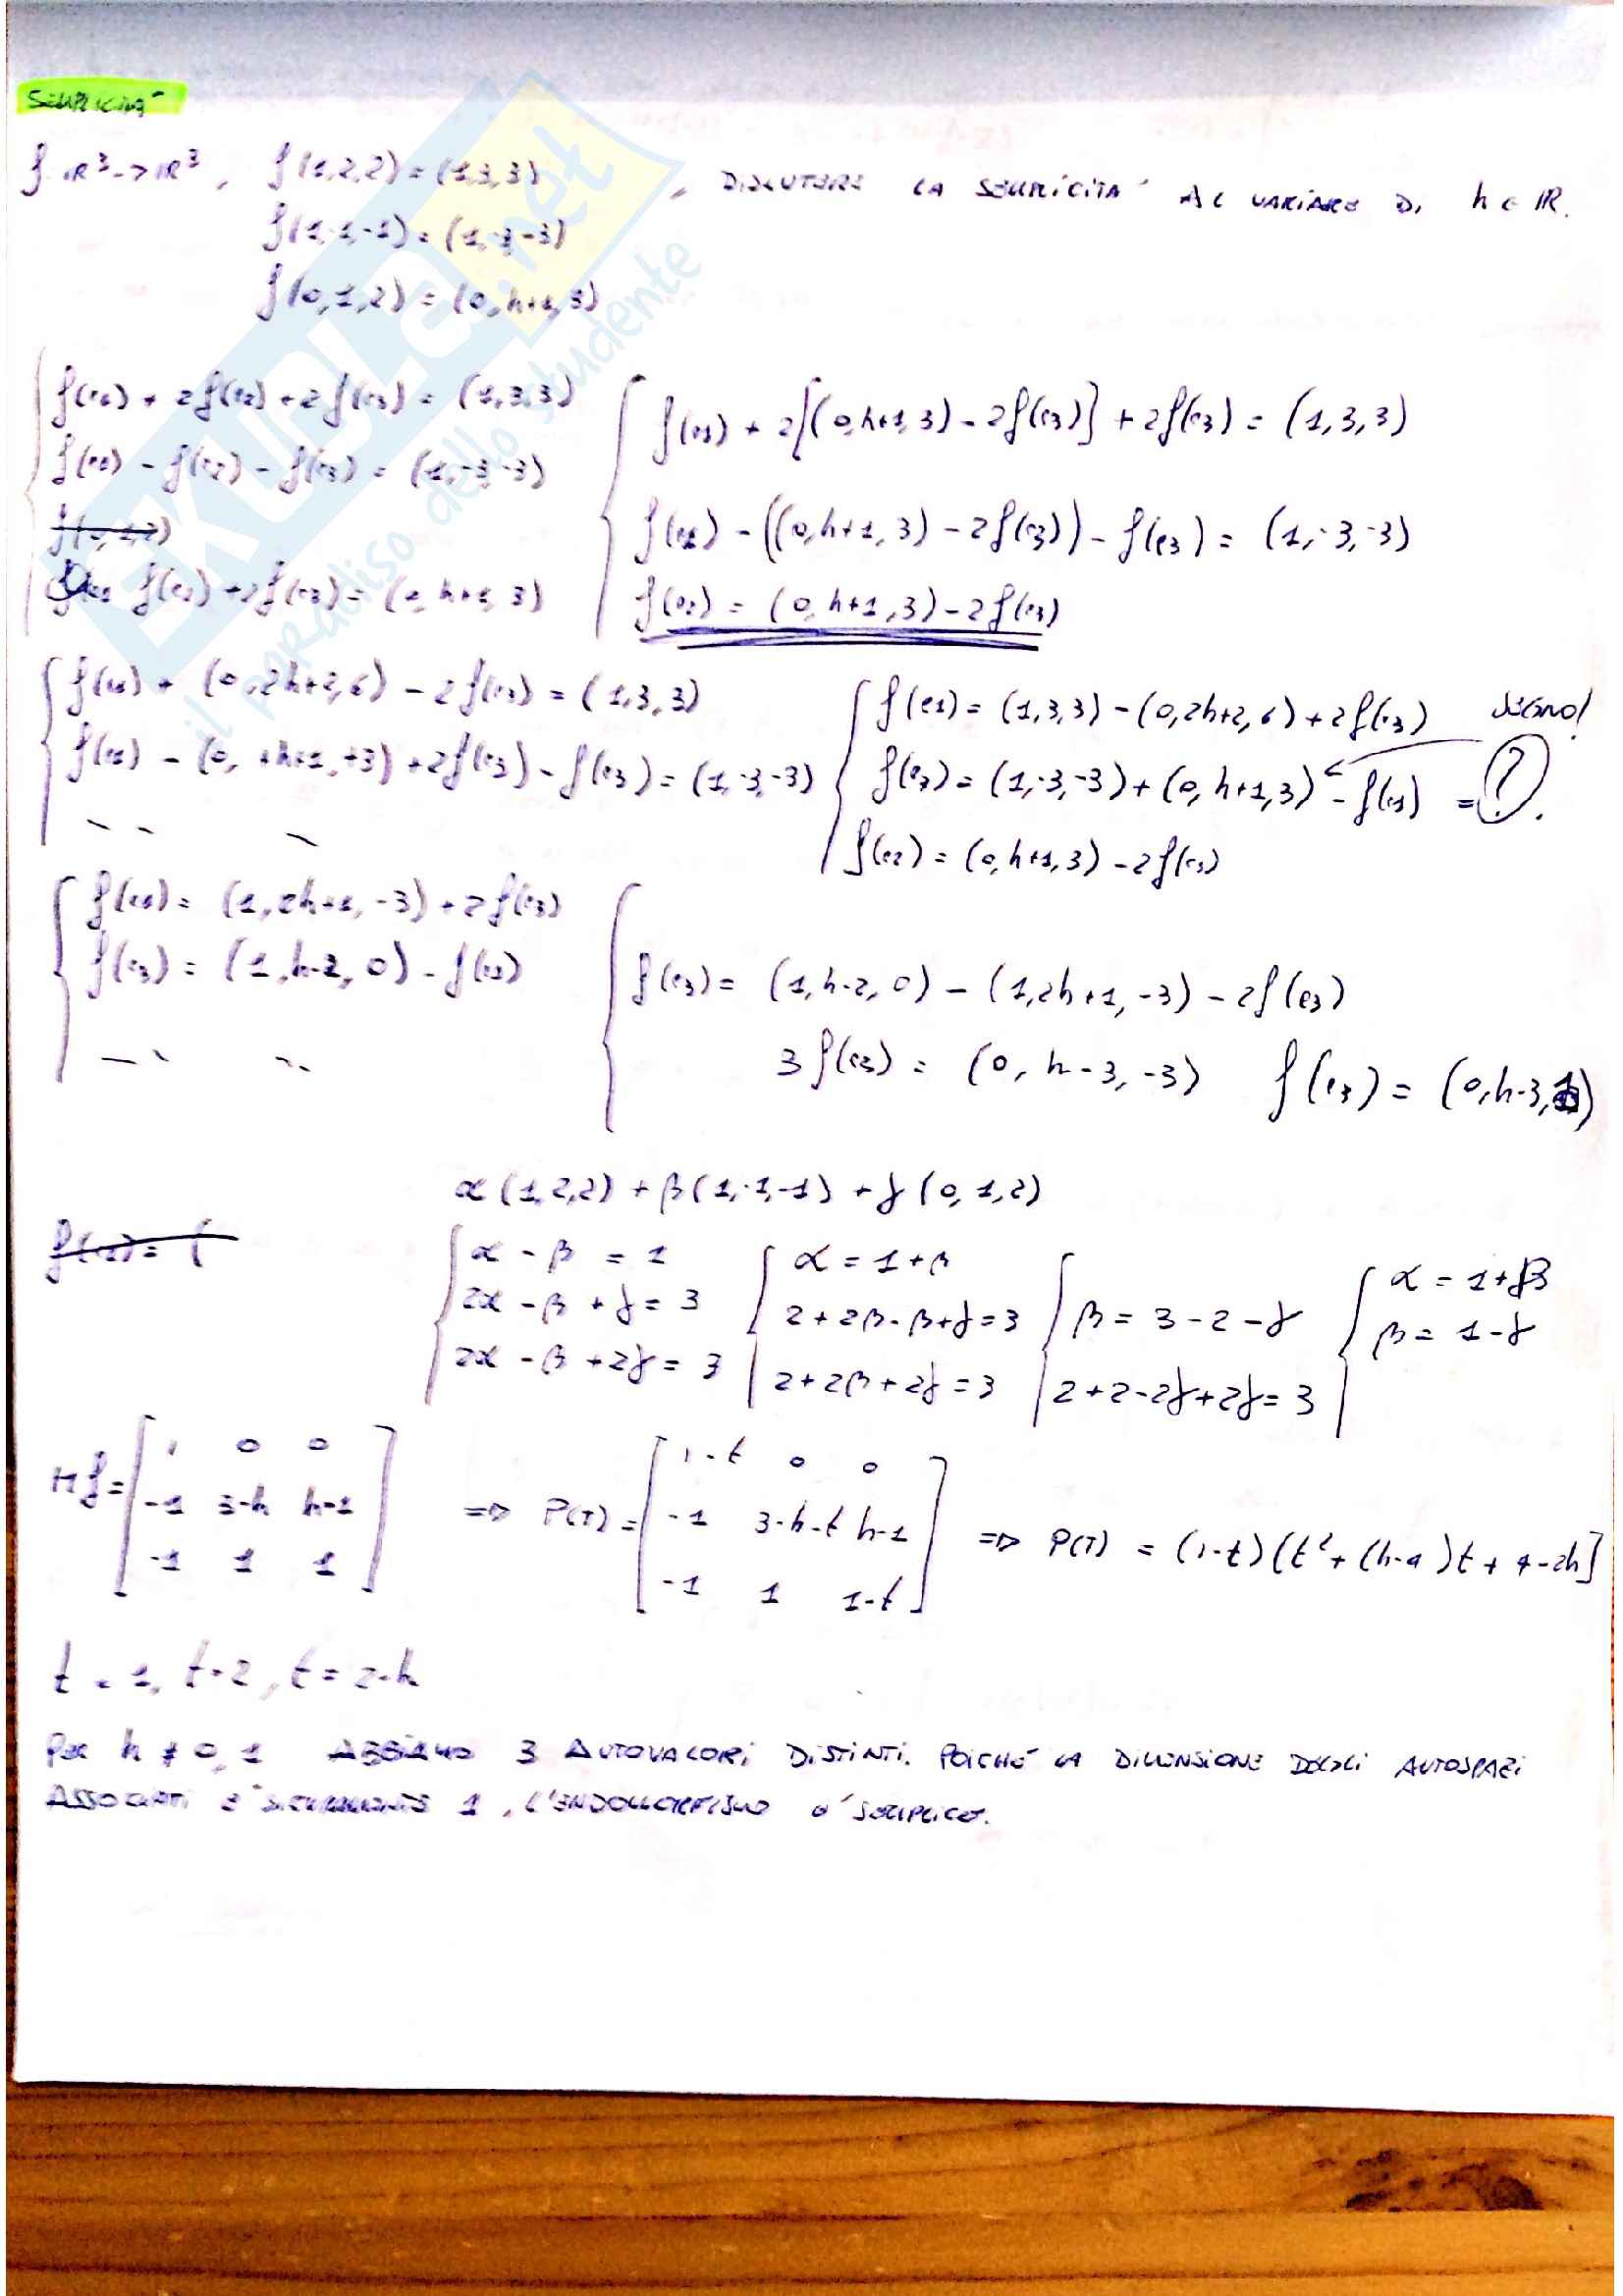 SEMPLICITÀ
f: ℝ³->ℝ³, f(1,2,2)=(1,3,3) , DISCUTERE LA SEMPLICITÀ AL VARIARE DI h ∈ ℝ.
f(1,-1,-1)=(1,-3,-3)
f(0,1,2)=(0,h+1,3)
f(e1)+2f(e2)+2f(e3)=(1,3,3)
f(e1)-f(e2)-f(e3)=(1,-3,-3)
f(e2)+2f(e3)=(0,h+1,3)
f(e1)+2[(0,h+1,3)-2f(e3)]+2f(e3)=(1,3,3)
f(e1)-((0,h+1,3)-2f(e3))-f(e3)=(1,-3,-3)
f(e2)=(0,h+1,3)-2f(e3)
f(e1)+(0,2h+2,6)-2f(e3)=(1,3,3)
f(e1)-(0,+h+1,+3)+2f(e3)-f(e3)=(1,-3,-3)
f(e1)=(1,3,3)-(0,2h+2,6)+2f(e3) SEGNO!
f(e3)=(1,-3,-3)+(0,h+1,3)-f(e1) = ?.
f(e2)=(0,h+1,3)-2f(e3)
f(e1)=(1,2h+1,-3)+2f(e3)
f(e3)=(1,h-2,0)-f(e1)
f(e3)=(1,h-2,0)-(1,2h+1,-3)-2f(e3)
3f(e3)=(0,h-3,-3) f(e3)=(0,h-3,1)
α(1,2,2)+β(1,-1,-1)+γ(0,1,2)
α-β=1
2α-β+γ=3
2α-β+2γ=3
α=1+β
2+2β-β+γ=3
2+2β+2γ=3
β=3-2-γ
2+2-2γ+2γ=3
α=1+β
β=1-γ
Mf= [ 1 0 0
-1 3-h h-1
-1 1 1 ]
=> P(T)= [ 1-t 0 0
-1 3-h-t h-1
-1 1 1-t ]
=> P(T) = (1-t)(t²+(h-4)t+4-2h]
t=1, t=2, t=2-h
PER h≠0,1 ABBIAMO 3 AUTOVALORI DISTINTI. POICHÉ LA DIMENSIONE DEGLI AUTOSPAZI
ASSOCIATI È SICURAMENTE 1, L'ENDOMORFISMO È SEMPLICE.
SKUOLA.net
il paradiso dello studente